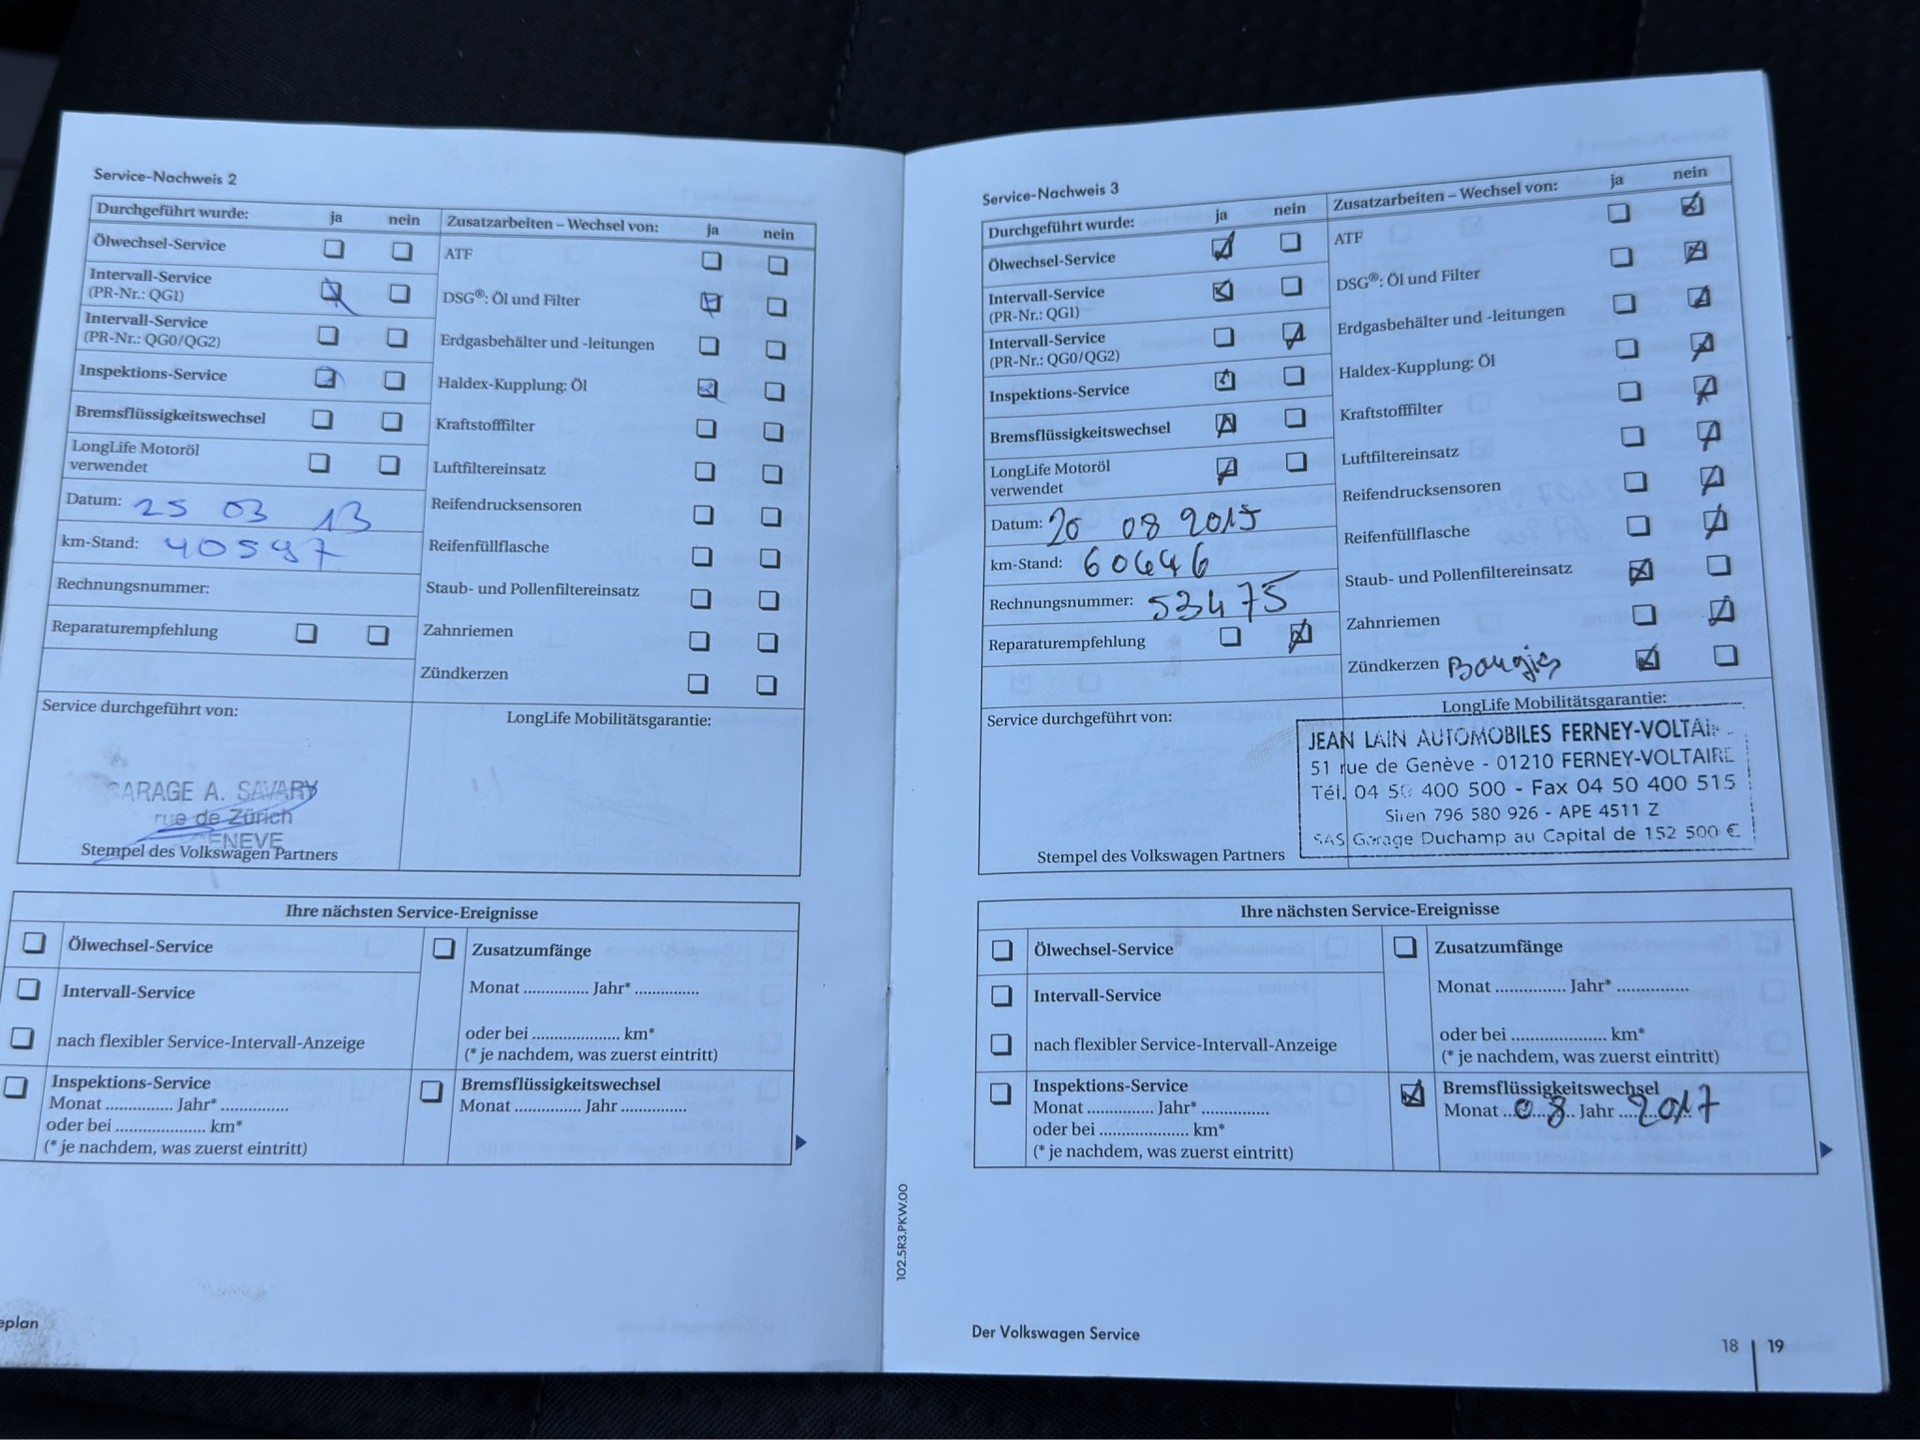 Service-Nachweis 2
Durchgeführt wurde: ja nein
Ölwechsel-Service
Intervall-Service
(PR-Nr.: QG1)
Intervall-Service
(PR-Nr.: QG0/QG2)
Inspektions-Service
Bremsflüssigkeitswechsel
LongLife Motoröl
verwendet
Datum: 25 03 13
km-Stand: 40597
Rechnungsnummer:
Reparaturempfehlung
Zusatzarbeiten – Wechsel von: ja nein
ATF
DSG®: Öl und Filter
Erdgasbehälter und -leitungen
Haldex-Kupplung: Öl
Kraftstofffilter
Luftfiltereinsatz
Reifendrucksensoren
Reifenfüllflasche
Staub- und Pollenfiltereinsatz
Zahnriemen
Zündkerzen
Service durchgeführt von:
GARAGE A. SAVARY
rue de Zürich
GENEVE
Stempel des Volkswagen Partners
LongLife Mobilitätsgarantie:
Ihre nächsten Service-Ereignisse
Ölwechsel-Service
Intervall-Service
nach flexibler Service-Intervall-Anzeige
Inspektions-Service
Monat ............... Jahr* ...............
oder bei .................... km*
(* je nachdem, was zuerst eintritt)
Zusatzumfänge
Monat .............. Jahr* ..............
oder bei .................... km*
(* je nachdem, was zuerst eintritt)
Bremsflüssigkeitswechsel
Monat .............. Jahr ..............
eplan
Service-Nachweis 3
Durchgeführt wurde: ja nein
Ölwechsel-Service
Intervall-Service
(PR-Nr.: QG1)
Intervall-Service
(PR-Nr.: QG0/QG2)
Inspektions-Service
Bremsflüssigkeitswechsel
LongLife Motoröl
verwendet
Datum: 20 08 2015
km-Stand: 60646
Rechnungsnummer: 53475
Reparaturempfehlung
Zusatzarbeiten – Wechsel von: ja nein
ATF
DSG®: Öl und Filter
Erdgasbehälter und -leitungen
Haldex-Kupplung: Öl
Kraftstofffilter
Luftfiltereinsatz
Reifendrucksensoren
Reifenfüllflasche
Staub- und Pollenfiltereinsatz
Zahnriemen
Zündkerzen Bougies
Service durchgeführt von:
Stempel des Volkswagen Partners
LongLife Mobilitätsgarantie:
JEAN LAIN AUTOMOBILES FERNEY-VOLTAI
51 rue de Genève - 01210 FERNEY-VOLTAIRE
Tél. 04 50 400 500 - Fax 04 50 400 515
Siren 796 580 926 - APE 4511 Z
SAS Garage Duchamp au Capital de 152 500 €
Ihre nächsten Service-Ereignisse
Ölwechsel-Service
Intervall-Service
nach flexibler Service-Intervall-Anzeige
Inspektions-Service
Monat ............... Jahr* ...............
oder bei .................... km*
(* je nachdem, was zuerst eintritt)
Zusatzumfänge
Monat ............... Jahr* ...............
oder bei .................... km*
(* je nachdem, was zuerst eintritt)
Bremsflüssigkeitswechsel
Monat 08 Jahr 2017
102.5R3.PKW.00
Der Volkswagen Service
18 | 19